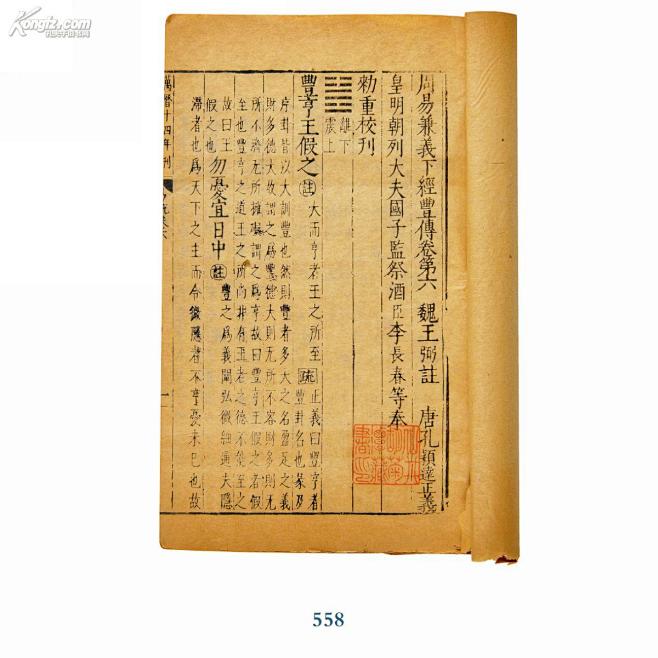 Kongfz.com
孔夫子旧书网
周易兼義下經豐傳卷第六 魏王弼註 唐孔穎達正義
皇明朝列大夫國子監祭酒臣李長春等奉
勑重校刊
離下
震上
豐亨王假之註大而亨者王之所至疏正義曰豐亨者
豐卦名也彖及
序卦皆以大訓豐也然則豐者多大之名盈足之義
財多德大故謂之爲豐德大則无所不容財多則无
所不濟无所擁礙謂之爲亨故曰豐亨王假之者假
至也豐亨之道王之所尚非有王者之德不能至之
故曰王
假之也勿憂宜日中註豐之爲義闡弘微細通夫隱
滯者也爲天下之主而令微隱者不亨憂未已也故
萬曆十四年刊
558